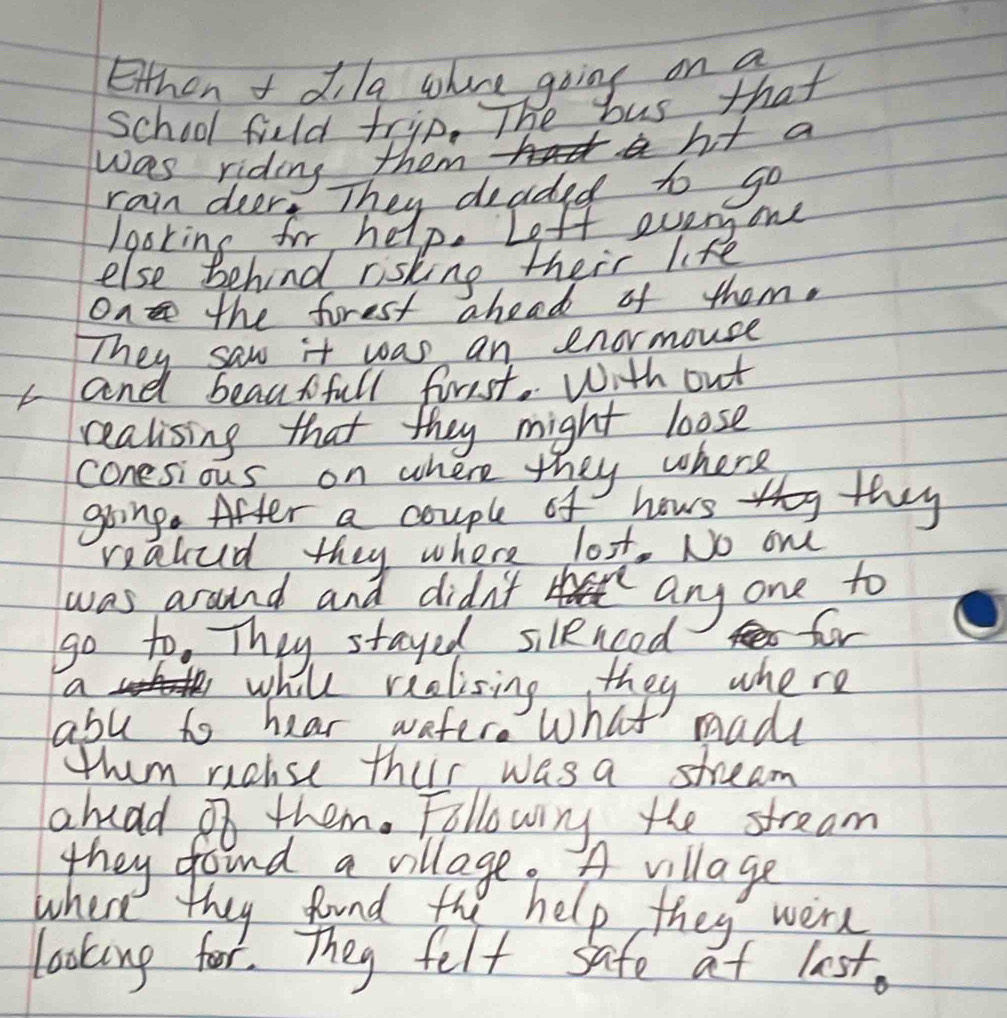 Ethan + Lila where going on a
school field trip. The bus that
was riding them had a hit a
rain deer. They decided to go
looking for help. Left everyone
else behind risking their life
on the forest ahead of them.
They saw it was an enormouse
and beautifull forest. With out
realising that they might loose
conesious on where they where
going. After a couple of hours they
realized they where lost. No one
was around and didn't have any one to
go to. They stayed silenced for
a while realising they where
able to hear water. What made
them realise their was a stream
ahead of them. Following the stream
they found a village. A village
where they found the help they were
looking for. They felt safe at last.